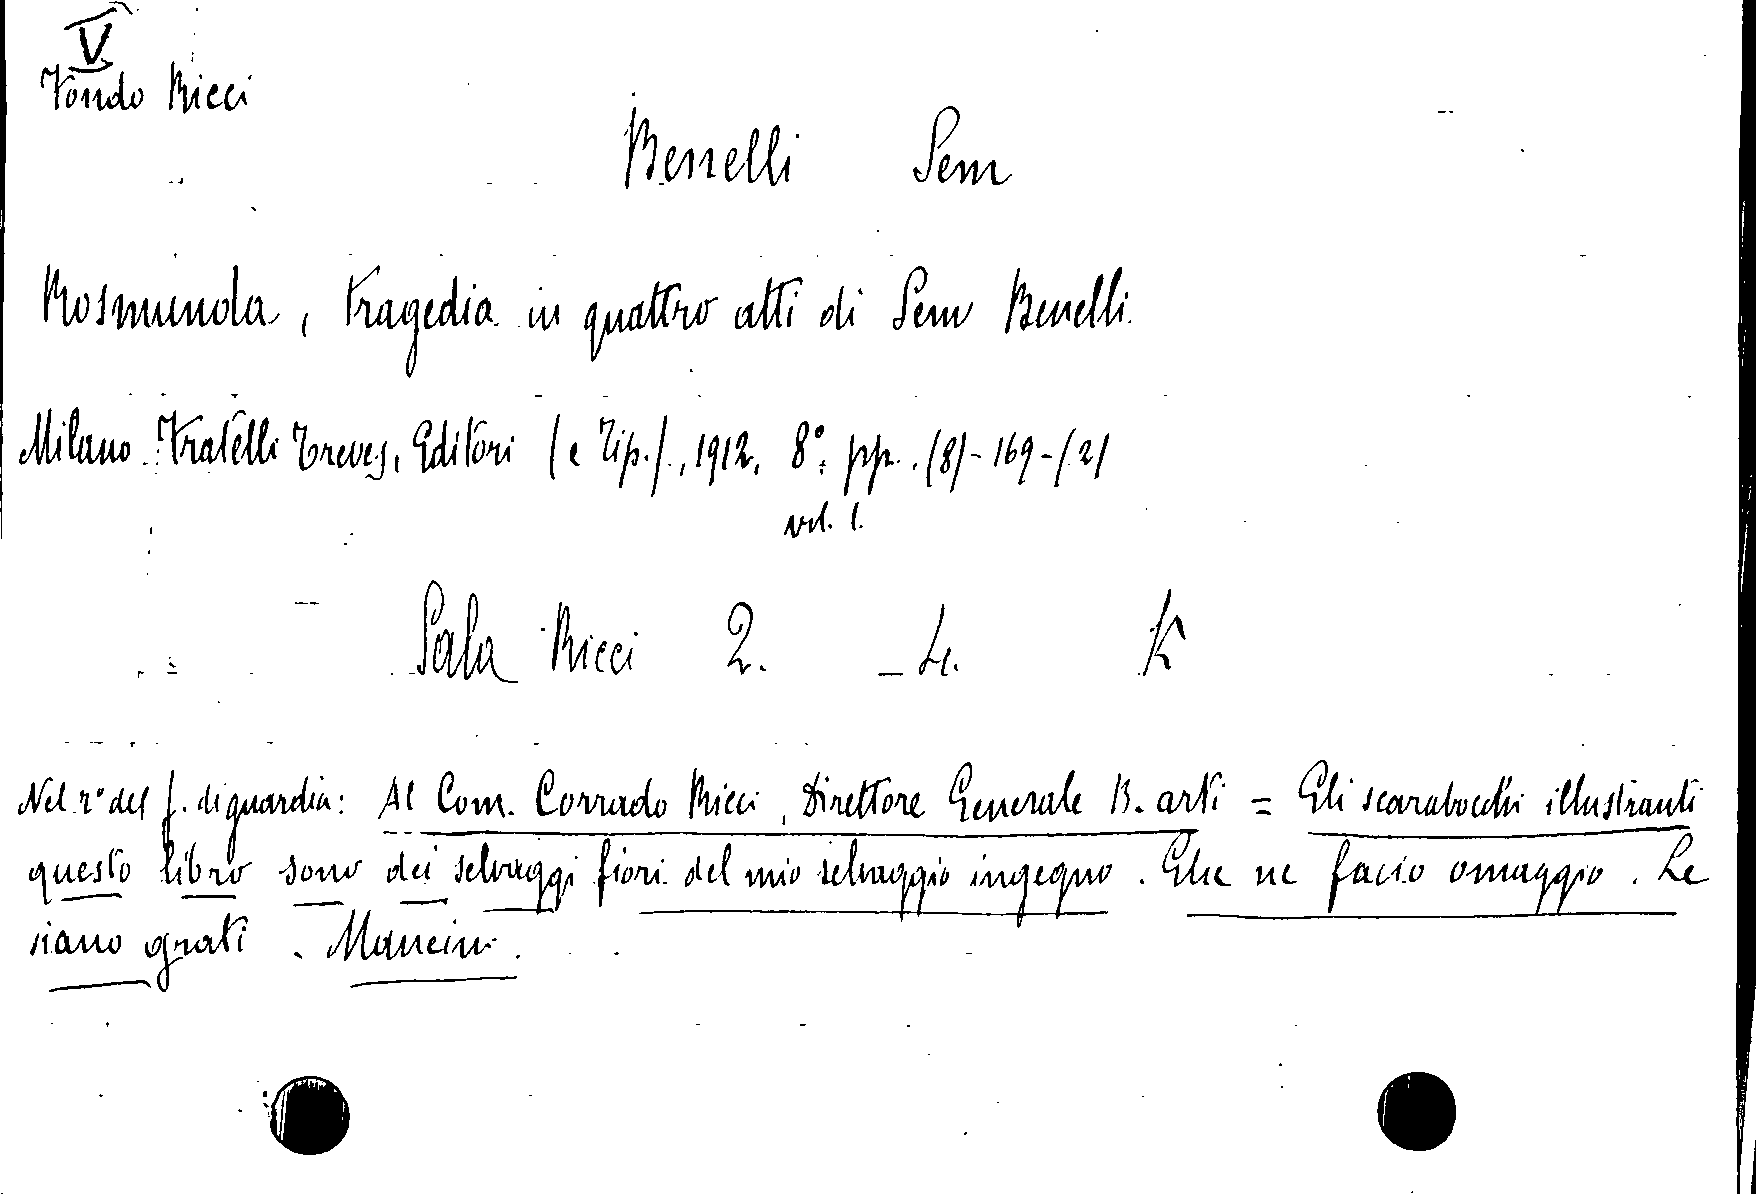 V
Fondo Ricci
Benelli Sem
Rosmunda, tragedia in quattro atti di Sem Benelli.
Milano. Fratelli Treves, Editori (e Tip.), 1912, 8°, pp. (8)-169-(2)
vol. 1.
Sala Ricci 2. L. K
Nel r° del f. di guardia: Al Com. Corrado Ricci, Direttore Generale B. arti = Gli scarabocchi illustranti
questo libro sono dei selvaggi fiori del mio selvaggio ingegno. Glie ne facio omaggio. Le
siano grati. Mancini.